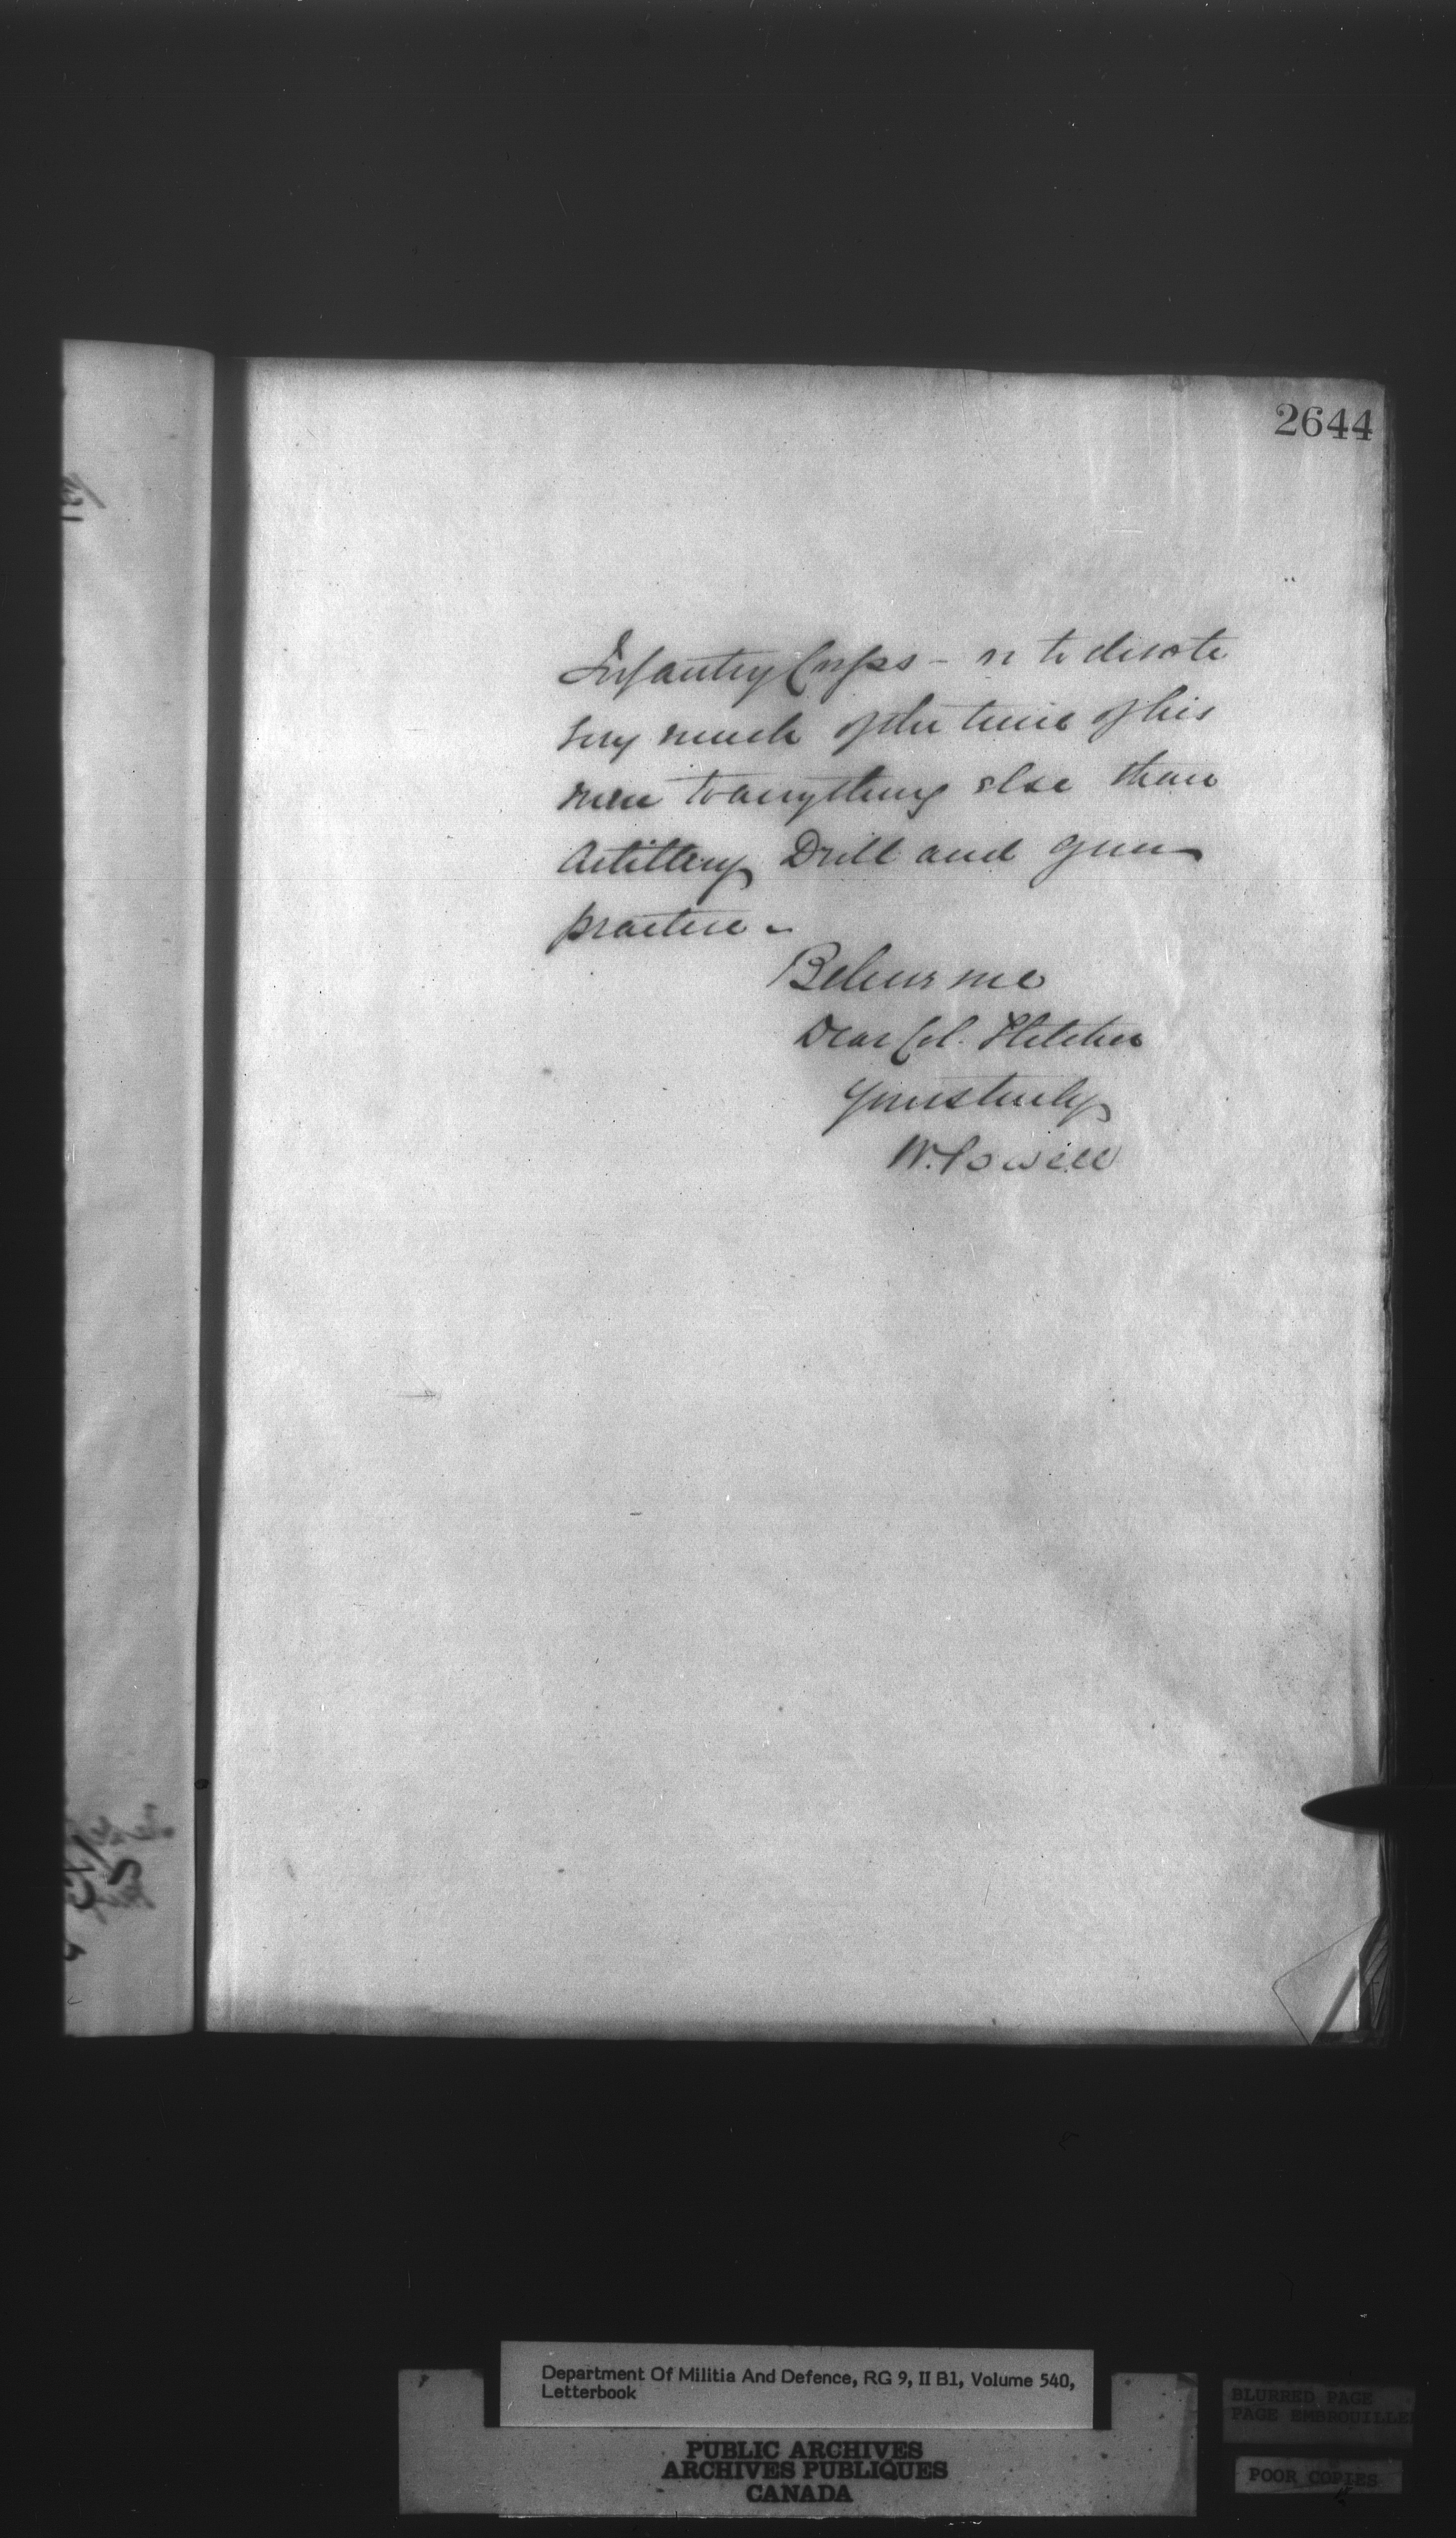 2644
Infantry Corps - or to devote
very much of the time of his
men to anything else than
Artillery Drill and gun
practice -
Believe me
Dear Col. Fletcher
Yours truly
W. Powell
Department Of Militia And Defence, RG 9, II B1, Volume 540,
Letterbook
PUBLIC ARCHIVES
ARCHIVES PUBLIQUES
CANADA
BLURRED PAGE
PAGE EMBROUILLE
POOR COPIES